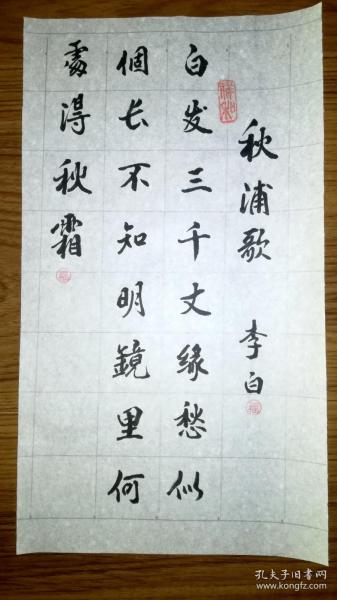 秋浦歌 李白
白发三千丈缘愁似
個长不知明鏡里何
處得秋霜
孔夫子旧书网
www.kongfz.com